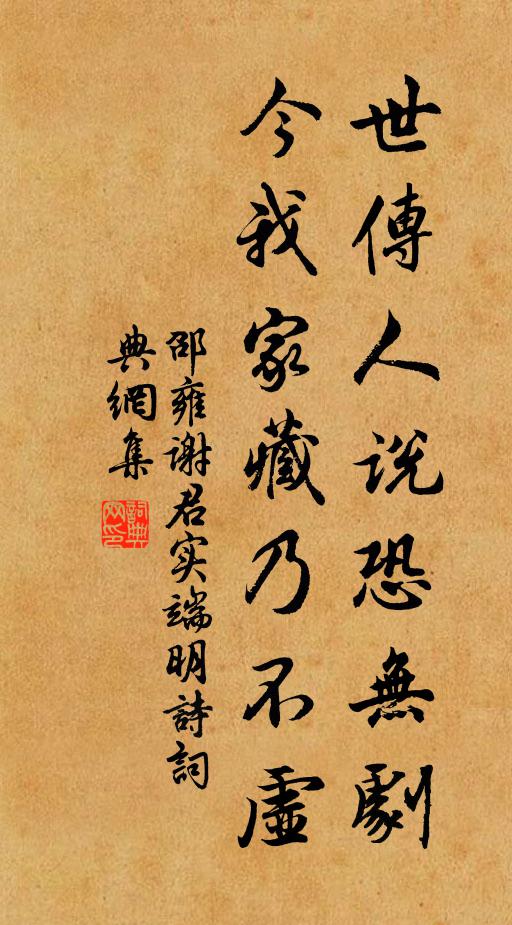 世傳人說恐無劇
今我家藏乃不虛
邵雍謝君实端明詩詞
典網集
詞典
网印